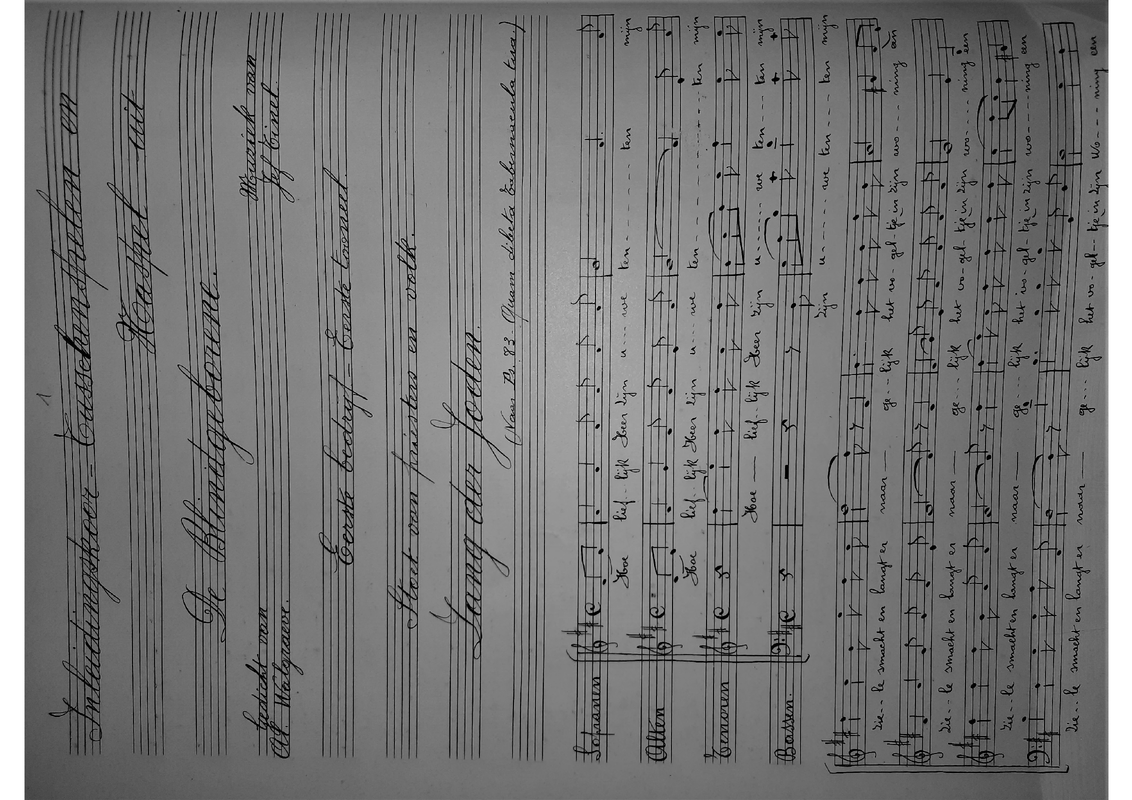 1
Inleidingskoor - Tusschenspelen en
Naspel uit
De Blindgeborene.
Gedicht van
Al. Walgrave.
Muziek van
Jef Tinel
Eerste bedrijf - Eerste tooneel
Stoet van priesters en volk.
Zang der Joden.
(Naar Ps. 83. Quam dilecta tabernacula tua.)
Sopranen
Hoe lief - lijk Heer zijn u - we ten - ten mijn
Alten
Hoe lief - lijk Heer zijn u - we ten - ten mijn
Tenoren
Hoe lief - lijk Heer zijn u - we ten - ten mijn
Bassen.
Zijn u - we ten - ten mijn
Zie - le smacht en hangt er naar ge - lijk het vo - gel - tje in zijn wo - ning een
Zie - le smacht en hangt er naar ge - lijk het vo - gel - tje in zijn wo - ning een
Zie - le smacht en hangt er naar ge - lijk het vo - gel - tje in zijn wo - ning een
Zie - le smacht en hangt er naar ge - lijk het vo - gel - tje in zijn wo - ning een